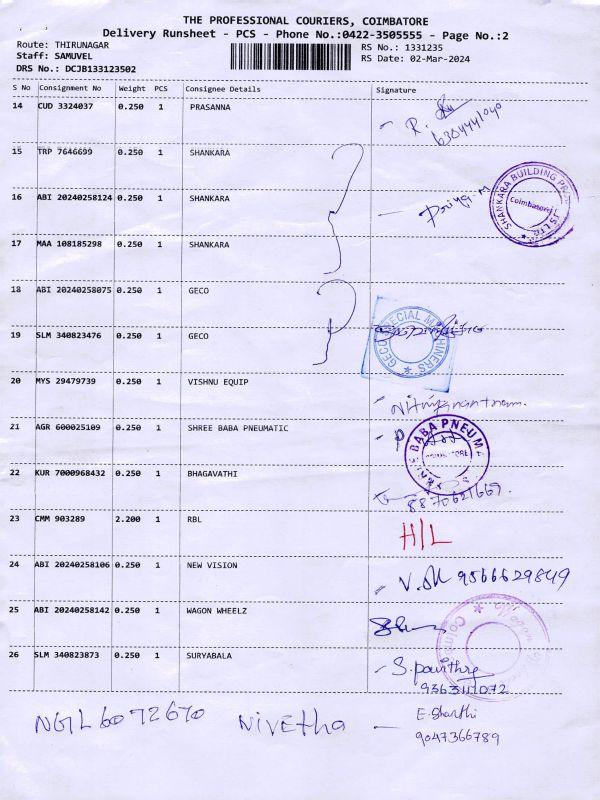 THE PROFESSIONAL COURIERS, COIMBATORE
Delivery Runsheet - PCS - Phone No.:0422-3505555 - Page No.:2
Route: THIRUNAGAR RS No.: 1331235
Staff: SAMUVEL RS Date: 02-Mar-2024
DRS No.: DCJB133123502
S No Consignment No Weight PCS Consignee Details Signature
14 CUD 3324037 0.250 1 PRASANNA
R.
6304441040
15 TRP 7646699 0.250 1 SHANKARA
16 ABI 20240258124 0.250 1 SHANKARA
Priya. M
SHANKARA BUILDING
Coimbatore
17 MAA 108185298 0.250 1 SHANKARA
18 ABI 20240258075 0.250 1 GECO
GECO SPECIAL MACHINERS
19 SLM 340823476 0.250 1 GECO
20 MYS 29479739 0.250 1 VISHNU EQUIP
21 AGR 600025109 0.250 1 SHREE BABA PNEUMATIC
BABA PNEUMA
22 KUR 7000968432 0.250 1 BHAGAVATHI
8870621669.
23 CMM 903289 2.200 1 RBL H/L
24 ABI 20240258106 0.250 1 NEW VISION
9566629849
25 ABI 20240258142 0.250 1 WAGON WHEELZ
26 SLM 340823873 0.250 1 SURYABALA
S. pavithra
9363117072
NGTL6072670 Nivetha
E. Sharthi
9047366789